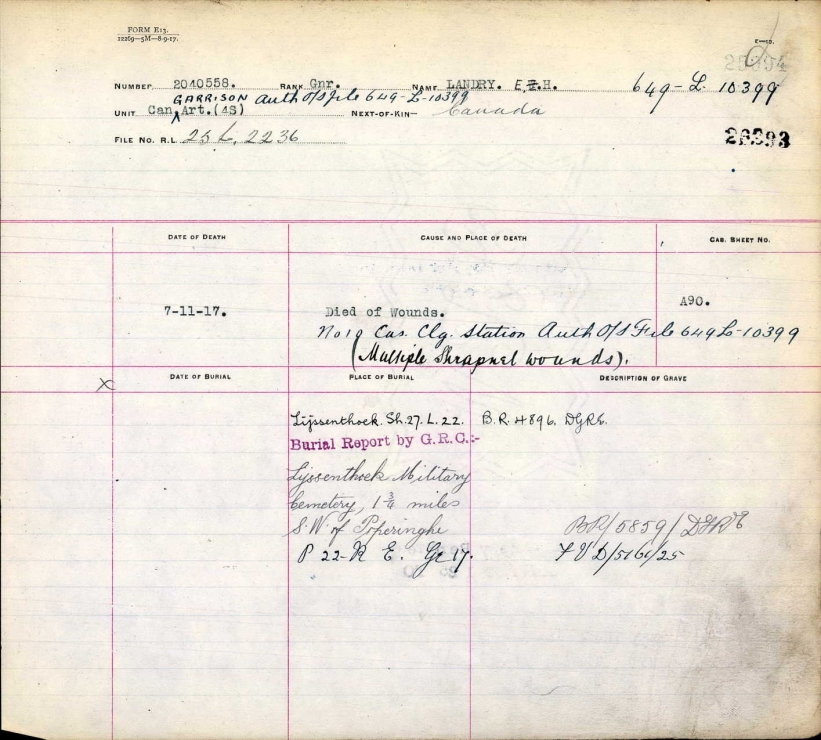 FORM E13.
12269—5M—8-9-17.
NUMBER 2040558. RANK Gnr. NAME LANDRY. E.H. 649-L. 10399
GARRISON Auth O/S file 649-L-10399
UNIT Can. Art.(4S) NEXT-OF-KIN— Canada
FILE NO. R.L. 25 L. 2236
26393
DATE OF DEATH CAUSE AND PLACE OF DEATH CAS. SHEET NO.
7-11-17. Died of Wounds. A90.
No 10 Cas. Clg. Station Auth O/S File 649L-10399
(Multiple Shrapnel wounds).
X
DATE OF BURIAL PLACE OF BURIAL DESCRIPTION OF GRAVE
Lijssenthoek. Sh. 27. L. 22. B.R. 4896. DGRE.
Burial Report by G.R.C.:-
Lijssenthoek Military
Cemetery, 1 3/4 miles
S.W. of Poperinghe BR/5859/DGR&E
P 22-R E. Gr 17.